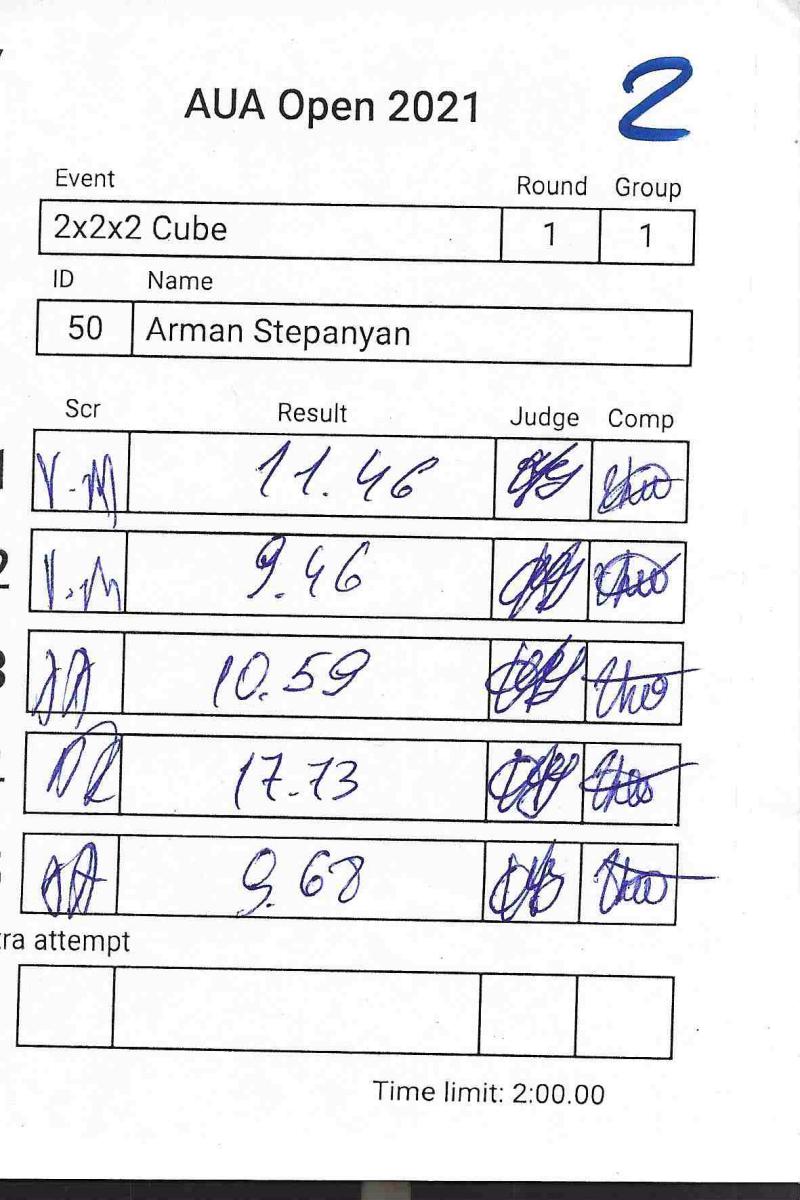 AUA Open 2021 2
Event Round Group
2x2x2 Cube 1 1
ID Name
50 Arman Stepanyan
Scr Result Judge Comp
V.M 11.46
V.M 9.46
10.59
17.73
9.68
tra attempt
Time limit: 2:00.00